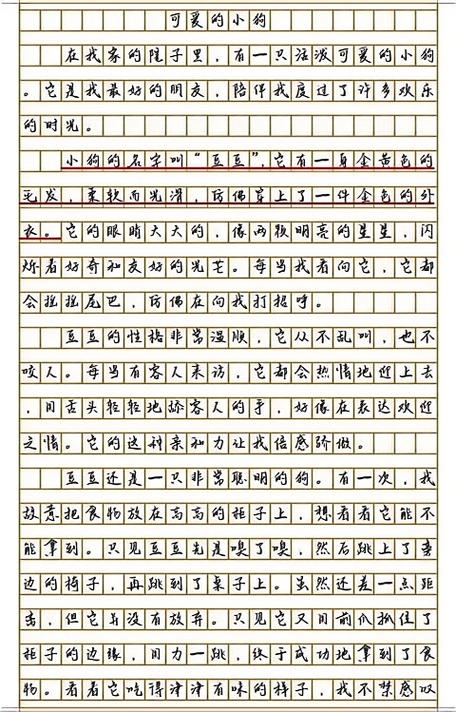 可爱的小狗
在我家的院子里，有一只活泼可爱的小狗
。它是我最好的朋友，陪伴我度过了许多欢乐
的时光。
小狗的名字叫“豆豆”，它有一身金黄色的
毛发，柔软而光滑，仿佛穿上了一件金色的外
衣。它的眼睛大大的，像两颗明亮的星星，闪
烁着好奇和友好的光芒。每当我看向它，它都
会摇摇尾巴，仿佛在向我打招呼。
豆豆的性格非常温顺，它从不乱叫，也不
咬人。每当有客人来访，它都会热情地迎上去
，用舌头轻轻地舔客人的手，好像在表达欢迎
之情。它的这种亲和力让我倍感骄傲。
豆豆还是一只非常聪明的狗。有一次，我
故意把食物放在高高的柜子上，想看看它能不
能拿到。只见豆豆先是嗅了嗅，然后跳上了旁
边的椅子，再跳到了桌子上。虽然还差一点距
离，但它并没有放弃。只见它又用前爪抓住了
柜子的边缘，用力一跳，终于成功地拿到了食
物。看着它吃得津津有味的样子，我不禁感叹